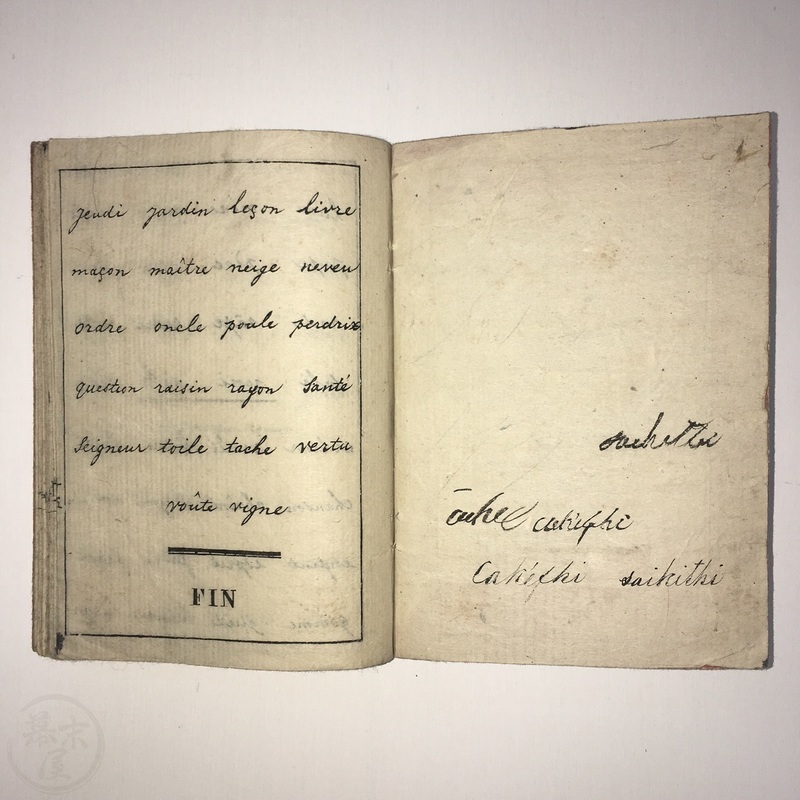 jeudi jardin leçon livre
maçon maître neige neveu
ordre oncle poule perdrix
question raisin rayon santé
Seigneur toile tache vertu
voûte vigne
FIN
saikithi
幕末屋